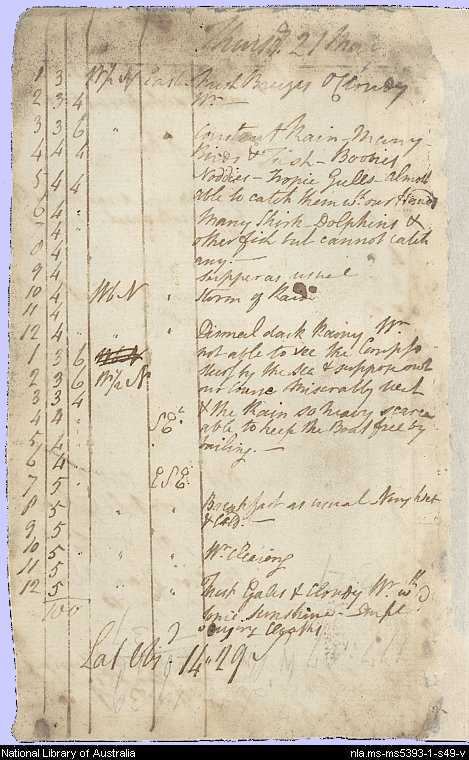 Thursd. 21 May
1 3 W½N East Fresh Breezes & Cloudy
2 3 4 Wr—
3 3 6 " " Constant Rain – Many
4 4 4 Birds & Fish – Boobies
5 4 4 Noddies – Tropic Gulls almost
able to catch them wth our Hands
6 4 " Many Shirk – Dolphins &
7 4 other fish but cannot catch
8 4 " any. —
9 4 Supper as usual
10 4 WbN " Storm of Rain
11 4
12 4 " " Dismal dark Rainy Wr
1 3 6 not able to see the Comp. so
2 3 6 W½N Steer by the Sea & suppose out
3 3 4 our course Miserably wet
4 4 SEt. & the Rain so heavy scarce
5 4 able to keep the Boat free by
6 4 bailing. —
7 5 ESE
8 5 Breakfast as usual Very wet
9 5 & Cold —
10 5 " " Wr Clearing
11 5
12 5 " " Fresh Gales & Cloudy Wr. wth
100 some Sunshine –
wrung Cloaths
Lat Obsd. 14"29 S
National Library of Australia
nla.ms-ms5393-1-s49-v